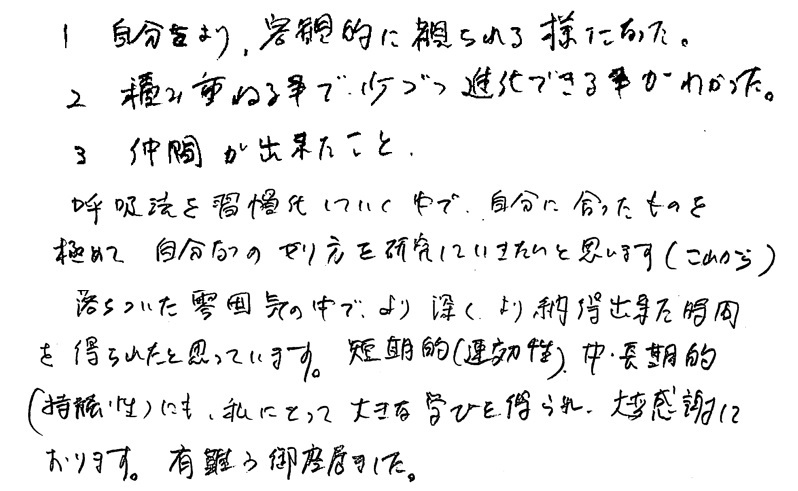 1 自分をより、客観的に観られる様になった。
2 積み重ねる事で、少づつ進化できる事がわかった。
3 仲間が出来たこと.
呼吸法を習慣化していく中で、自分に合ったものを
極めて 自分なりのやり方を研究していきたいと思います(これから)
落ちついた雰囲気の中で、より深く、より納得出来た時間
を得られたと思っています。短期的(速効性)、中・長期的
(持続性)にも、私にとって大きな学びを得られ、大変感謝して
おります。有難う御座居ました。